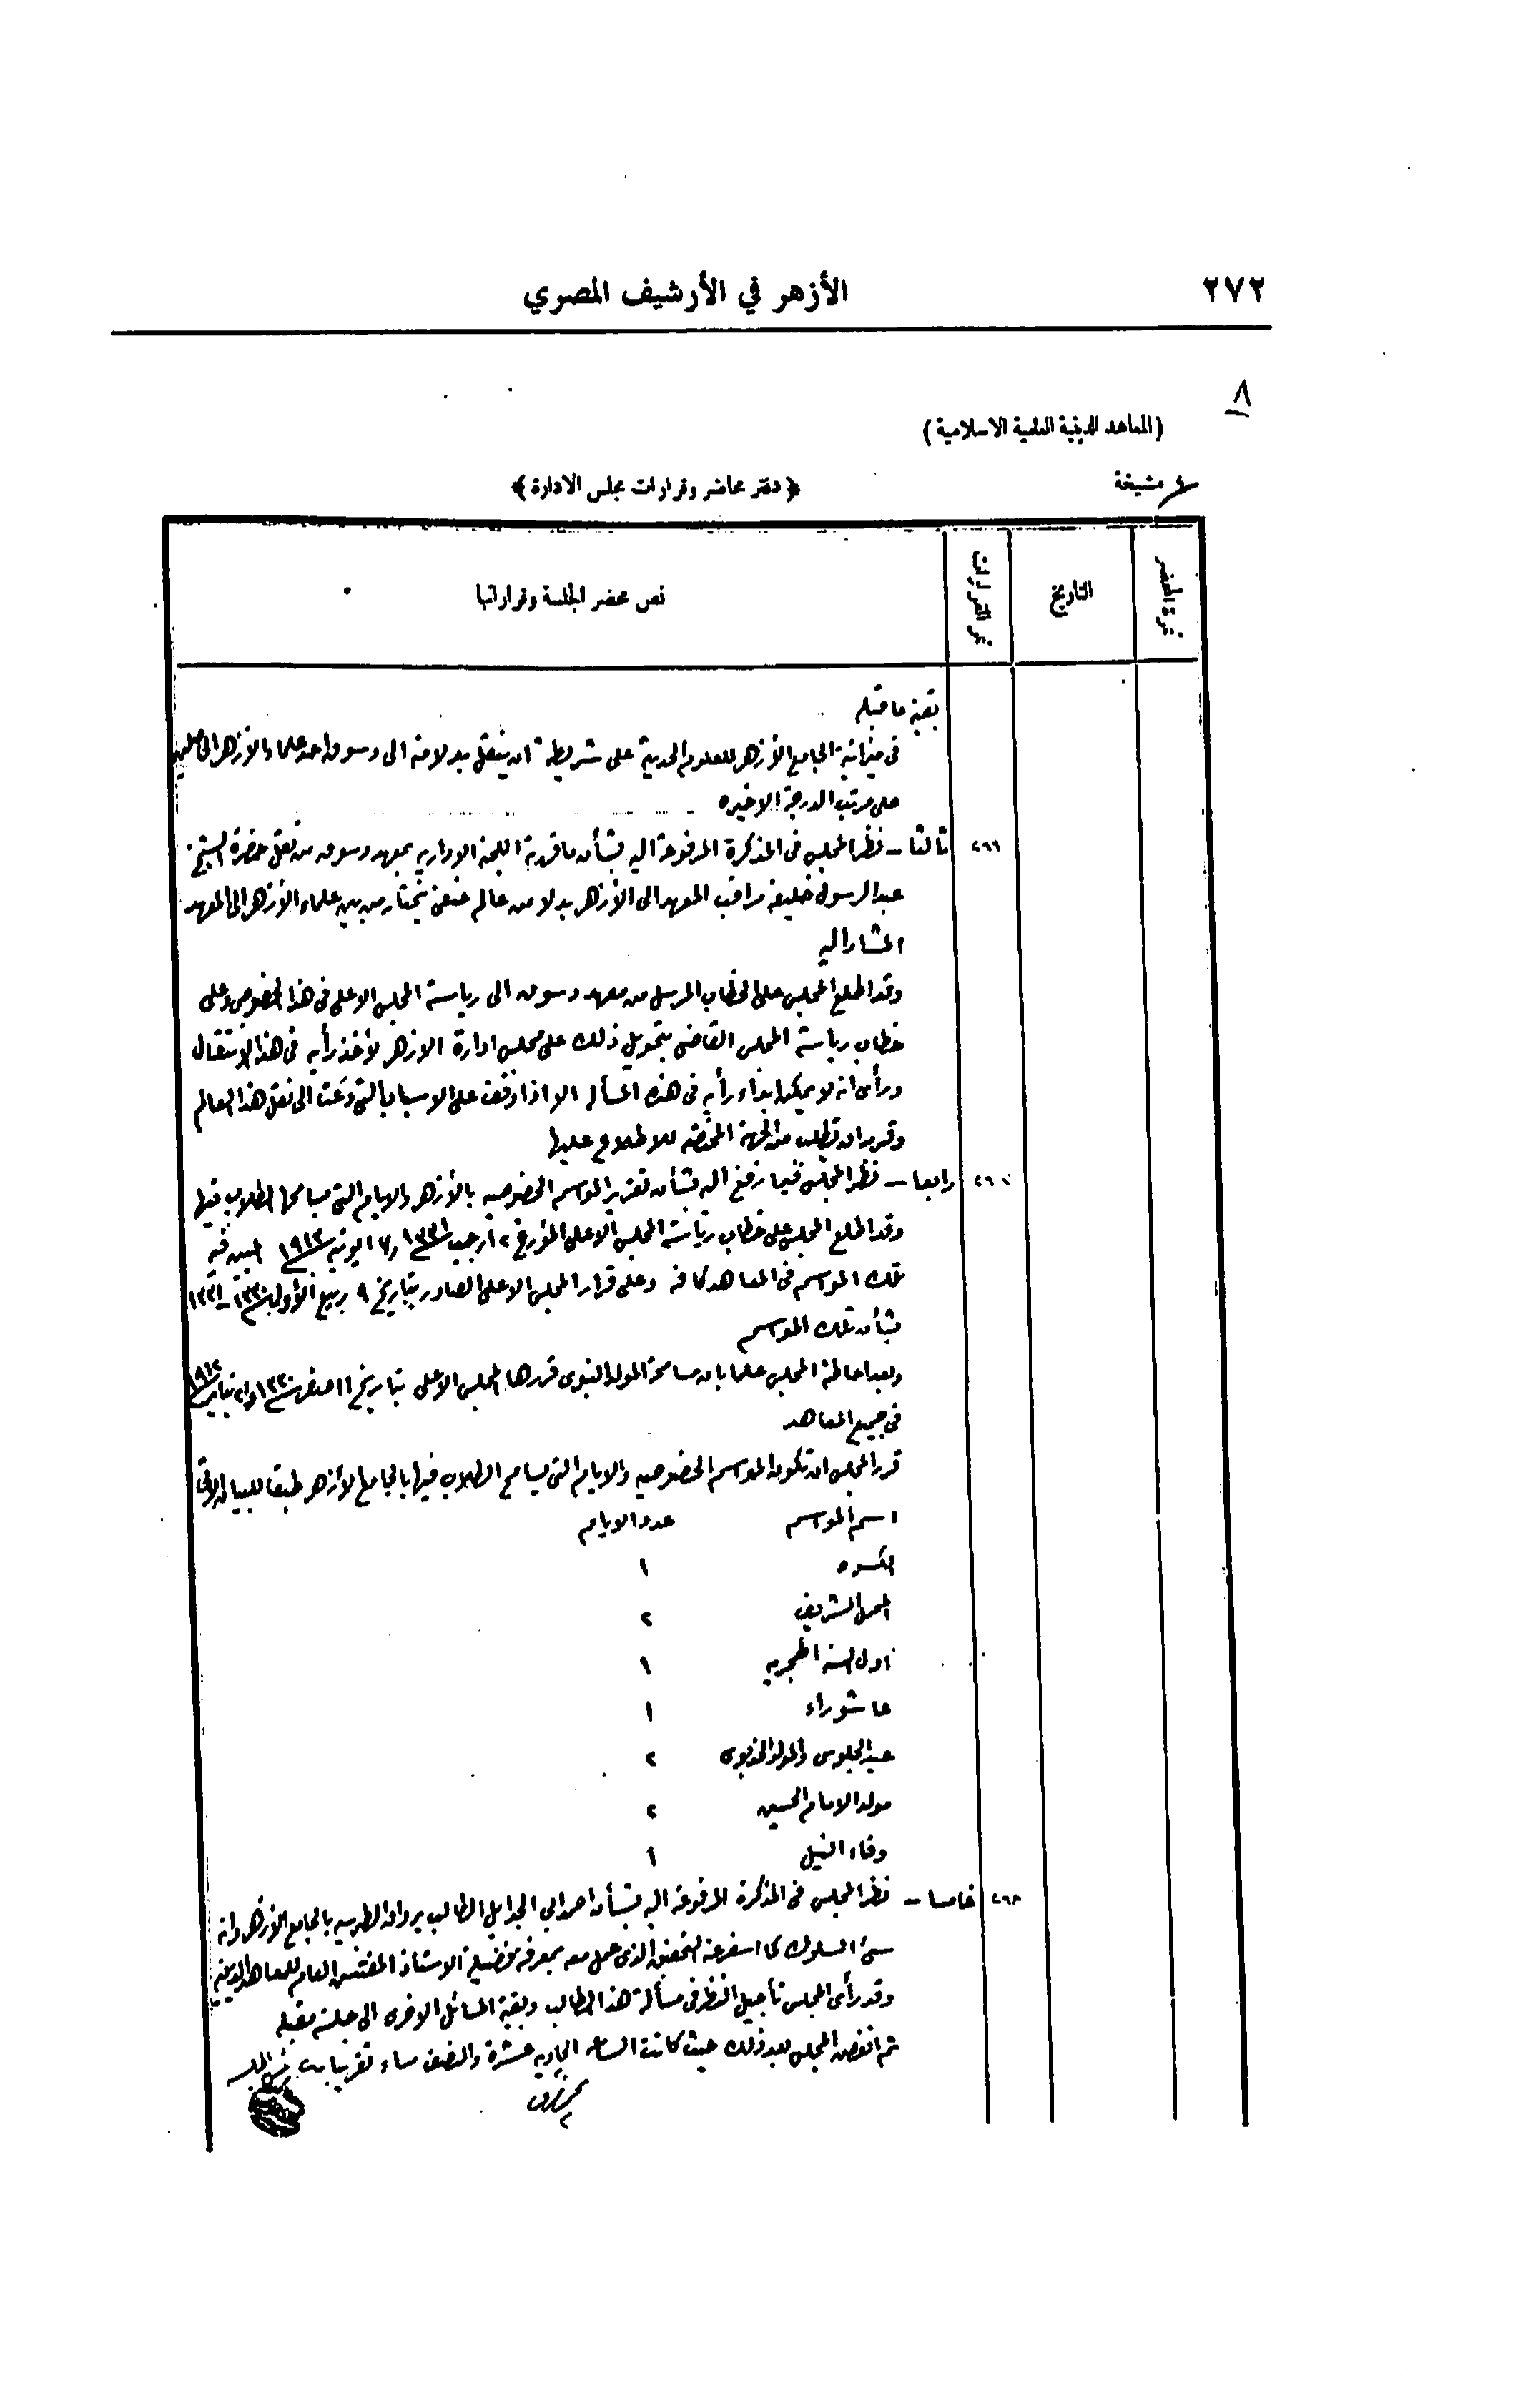 ٢٧٢
الأزهر في الأرشيف المصري
٨
(المعاهد الدينية العلمية الاسلامية)
مشيخة
﴿ دفتر محاضر وقرارات مجلس الادارة ﴾
نمرة المحضر
التاريخ
نمر القرارات
نص محضر الجلسة وقراراتها
بقية ما قبله
فى ميزانية الجامع الأزهر للعلوم الحديثة على شريطة ان ينتقل بدلا منه الى دسوق احد علماء الأزهر
على مرتب الدرجة الاخيره
٢٦٦ ثالثا – نظر المجلس فى المذكرة المرفوعة اليه بشأن ما قررته اللجنة الاداريه بمعهد دسوق من نقل حضرة الشيخ
عبد الرسول خليفه مراقب المعهد الى الأزهر بدلا من عالم حنفى يختار من بين علماء الأزهر الى المعهد
المشار اليه
وقد اطلع المجلس على الخطاب المرسل من معهد دسوق الى رياسة المجلس الاعلى فى هذا الخصوص وعلى
خطاب رياسة المجلس القاضى بتحويل ذلك على مجلس ادارة الازهر لأخذ رأيه فى هذا الانتقال
ورأى انه لا يمكن ابداء رأيه فى هذه المسأله الا اذا وقف على الاسباب التى دعت الى نقل هذا العالم
وقرر ان تطلب من الجهة المختصه للاطلاع عليها
٢٦٧ رابعا – نظر المجلس فيما رفع اليه بشأن تقرير المواسم الخصوصيه بالأزهر والايام التى يسامح الطلاب فيها
وقد اطلع المجلس على خطاب رياسة المجلس الاعلى المؤرخ ١٢ رجب سنة ١٣٣١ و١٧ يونيه سنة ١٩١٣ المبين فيه
تلك المواسم فى المعاهد كافه وعلى قرار المجلس الاعلى الصادر بتاريخ ٩ ربيع الأول سنة ١٣٣٠ – ١٣٣١
بشأن تلك المواسم
وبعد احاطة المجلس علما بان مسامحة المولد النبوى قررها المجلس الأعلى بتاريخ ١١ صفر سنة ١٣٣٠ و يناير سنة ١٩١٢
فى جميع المعاهد
قرر المجلس ان تكون المواسم الخصوصيه والايام التى يسامح الطلاب فيها بالجامع الأزهر طبقا للبيان الآتى
اسم الموسم عدد الايام
الكسوه ١
المحمل الشريف ٢
اول السنه الهجريه ١
عاشوراء ١
عيد الجلوس والمولد الخديوى ٢
مولد الامام الحسين ٢
وفاء النيل ١
٢٦٨ خامسا – نظر المجلس فى المذكرة المرفوعة اليه بشأن احمد ابي الجدايل الطالب برواق بالجامع الازهر وانه
سئ السلوك كما اسفر عنه التحقيق الذى عمل معه بمعرفة فضيلة الاستاذ المفتش العام للمعاهد الدينيه
وقد رأى المجلس تأجيل النظر فى مسألة هذا الطالب وبقية المسائل الاخرى الى جلسة مقبله
ثم انفض المجلس بعد ذلك حيث كانت الساعه الحاديه عشرة والنصف مساء تقريبا